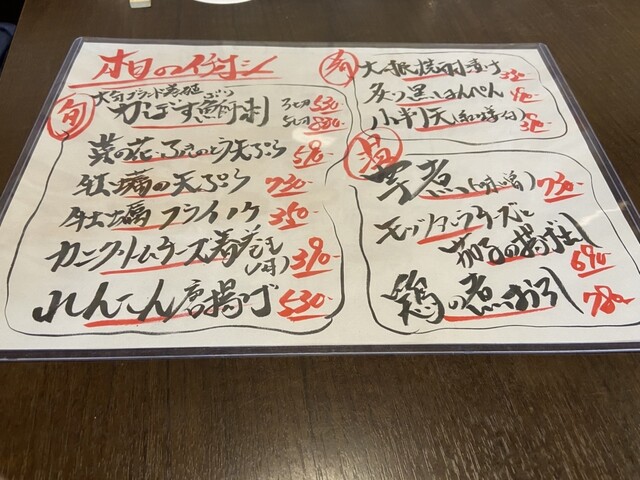 本日のイチオシ
旬
大分ブランド養殖ぶり
かぼす鰤刺 3切 530-
5切 880-
菜の花、ふきのとう天ぷら 590-
牡蠣の天ぷら 730-
牡蠣フライ 1ケ 350-
カニクリームチーズ春巻き(1本) 390-
れんこん唐揚げ 530-
肴
大根焼酎漬け
炙り黒はんぺん
小判天
温
芋煮(味噌) 730-
モッツァレラチーズと
茄子の揚げ出し 690-
鶏の煮おろし 780-